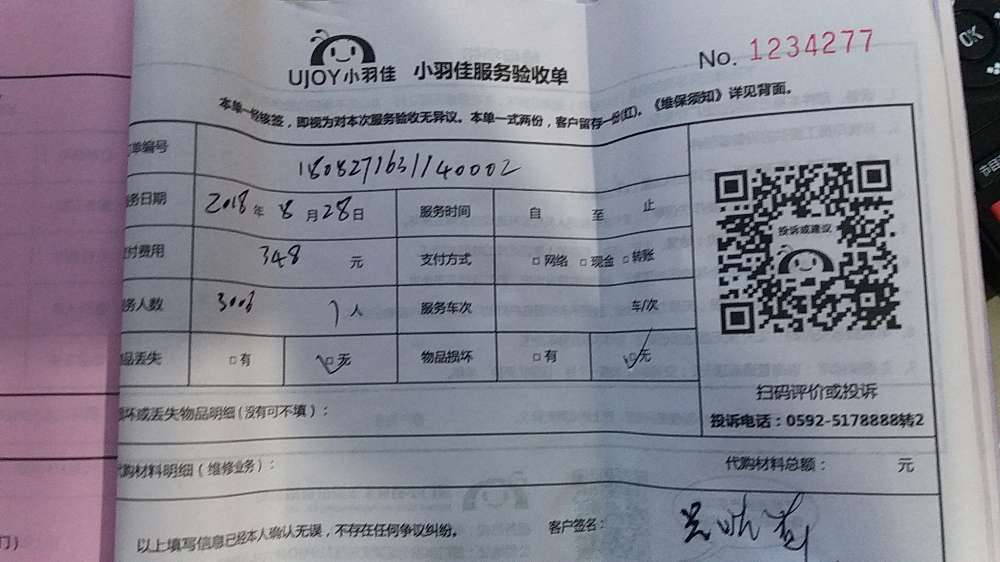 UJOY小羽佳 小羽佳服务验收单
No. 1234277
本单一经接签，即视为对本次服务验收无异议。本单一式两份，客户留存一份(红)。《维保须知》详见背面。
单编号 1808271631140002
务日期 2018年8月28日 服务时间 自 至 止
付费用 348 元 支付方式 □网络 □现金 □转账
务人数 人 服务车次 车/次
品丢失 □有 □无 物品损坏 □有 □无
损坏或丢失物品明细（没有可不填）：
代购材料明细（维修业务）： 代购材料总额： 元
以上填写信息已经本人确认无误，不存在任何争议纠纷。 客户签名：
投诉或建议
扫码评价或投诉
投诉电话：0592-5178888转2
门）
OK
节目